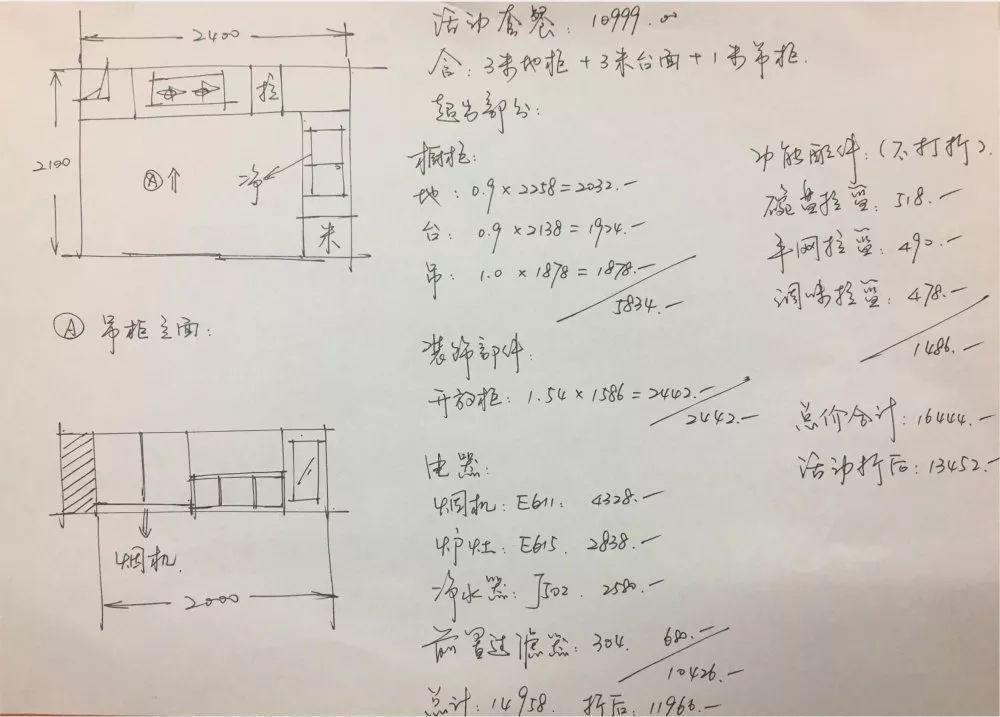 2400
2100
拉
Ⓐ↑
净
米
Ⓐ 吊柜立面:
烟机.
2000
活动套餐: 10999.00
含: 3米地柜 + 3米台面 + 1米吊柜.
超出部分:
橱柜:
地: 0.9 × 2258 = 2032.—
台: 0.9 × 2138 = 1924.—
吊: 1.0 × 1878 = 1878.—
5834.—
装饰部件:
开放柜: 1.54 × 1586 = 2442.—
2442.—
电器:
烟机: E611: 4328.—
炉灶: E615. 2838.—
净水器: J502 2580.—
前置过滤器: 304. 680.—
10426.—
总计: 14958. 折后: 11966.—
功能配件: (不打折).
碗盘拉篮: 518.—
平网拉篮: 490.—
调味拉篮: 478.—
1486.—
总价合计: 16444.—
活动折后: 13452.—